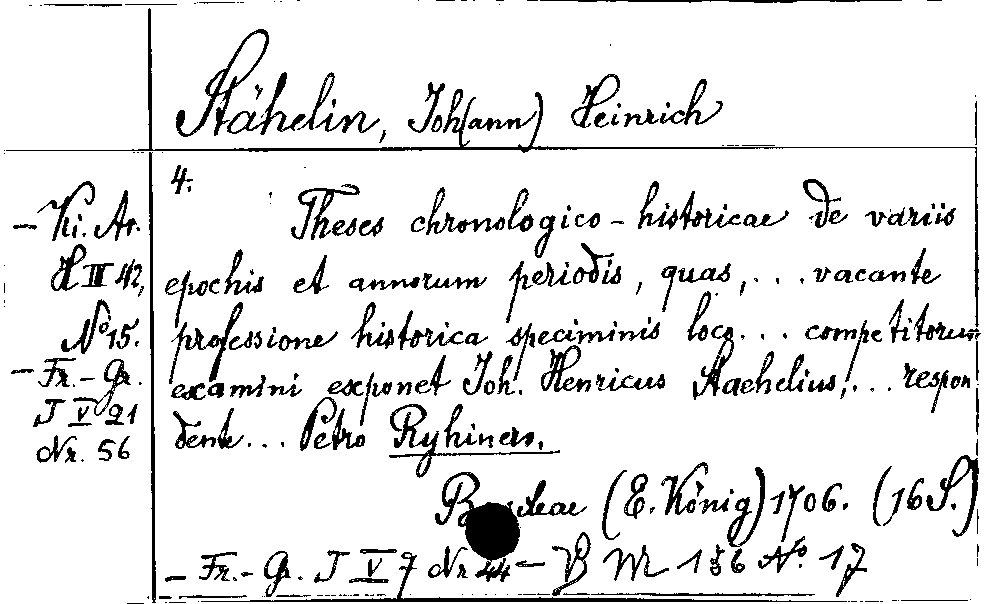 Stähelin, Joh(ann) Heinrich
4.
Theses chronologico-historicae de variis
epochis et annorum periodis, quas, ... vacante
professione historica speciminis loco ... competitorum
examini exponet Joh. Henricus Staehelius, ... respon
dente ... Petro Ryhinero.
Basileae (E. König) 1706. (16 S.)
- Fr.-Gr. J V 7 Nr 44 - V M 136 No. 17
- Ki. Ar.
H III 42,
No 15.
- Fr.-Gr.
J V 21
Nr. 56